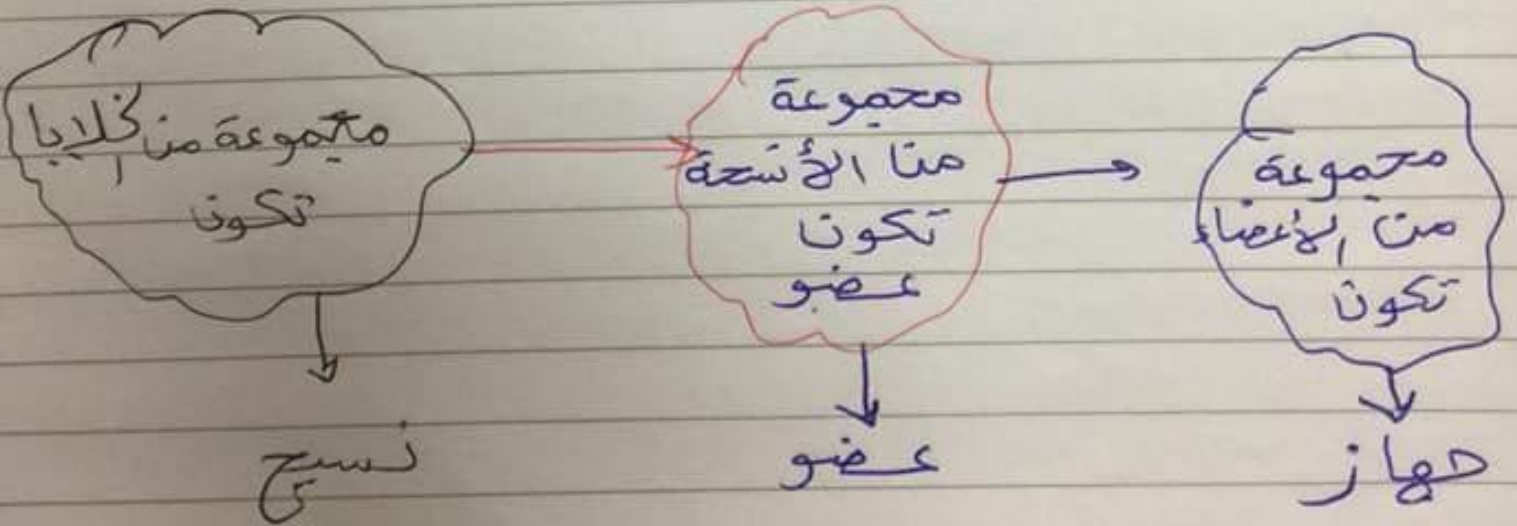 مجموعة من الخلايا
تكون
نسيج
مجموعة
من الأنسجة
تكون
عضو
عضو
مجموعة
من الأعضاء
تكون
جهاز